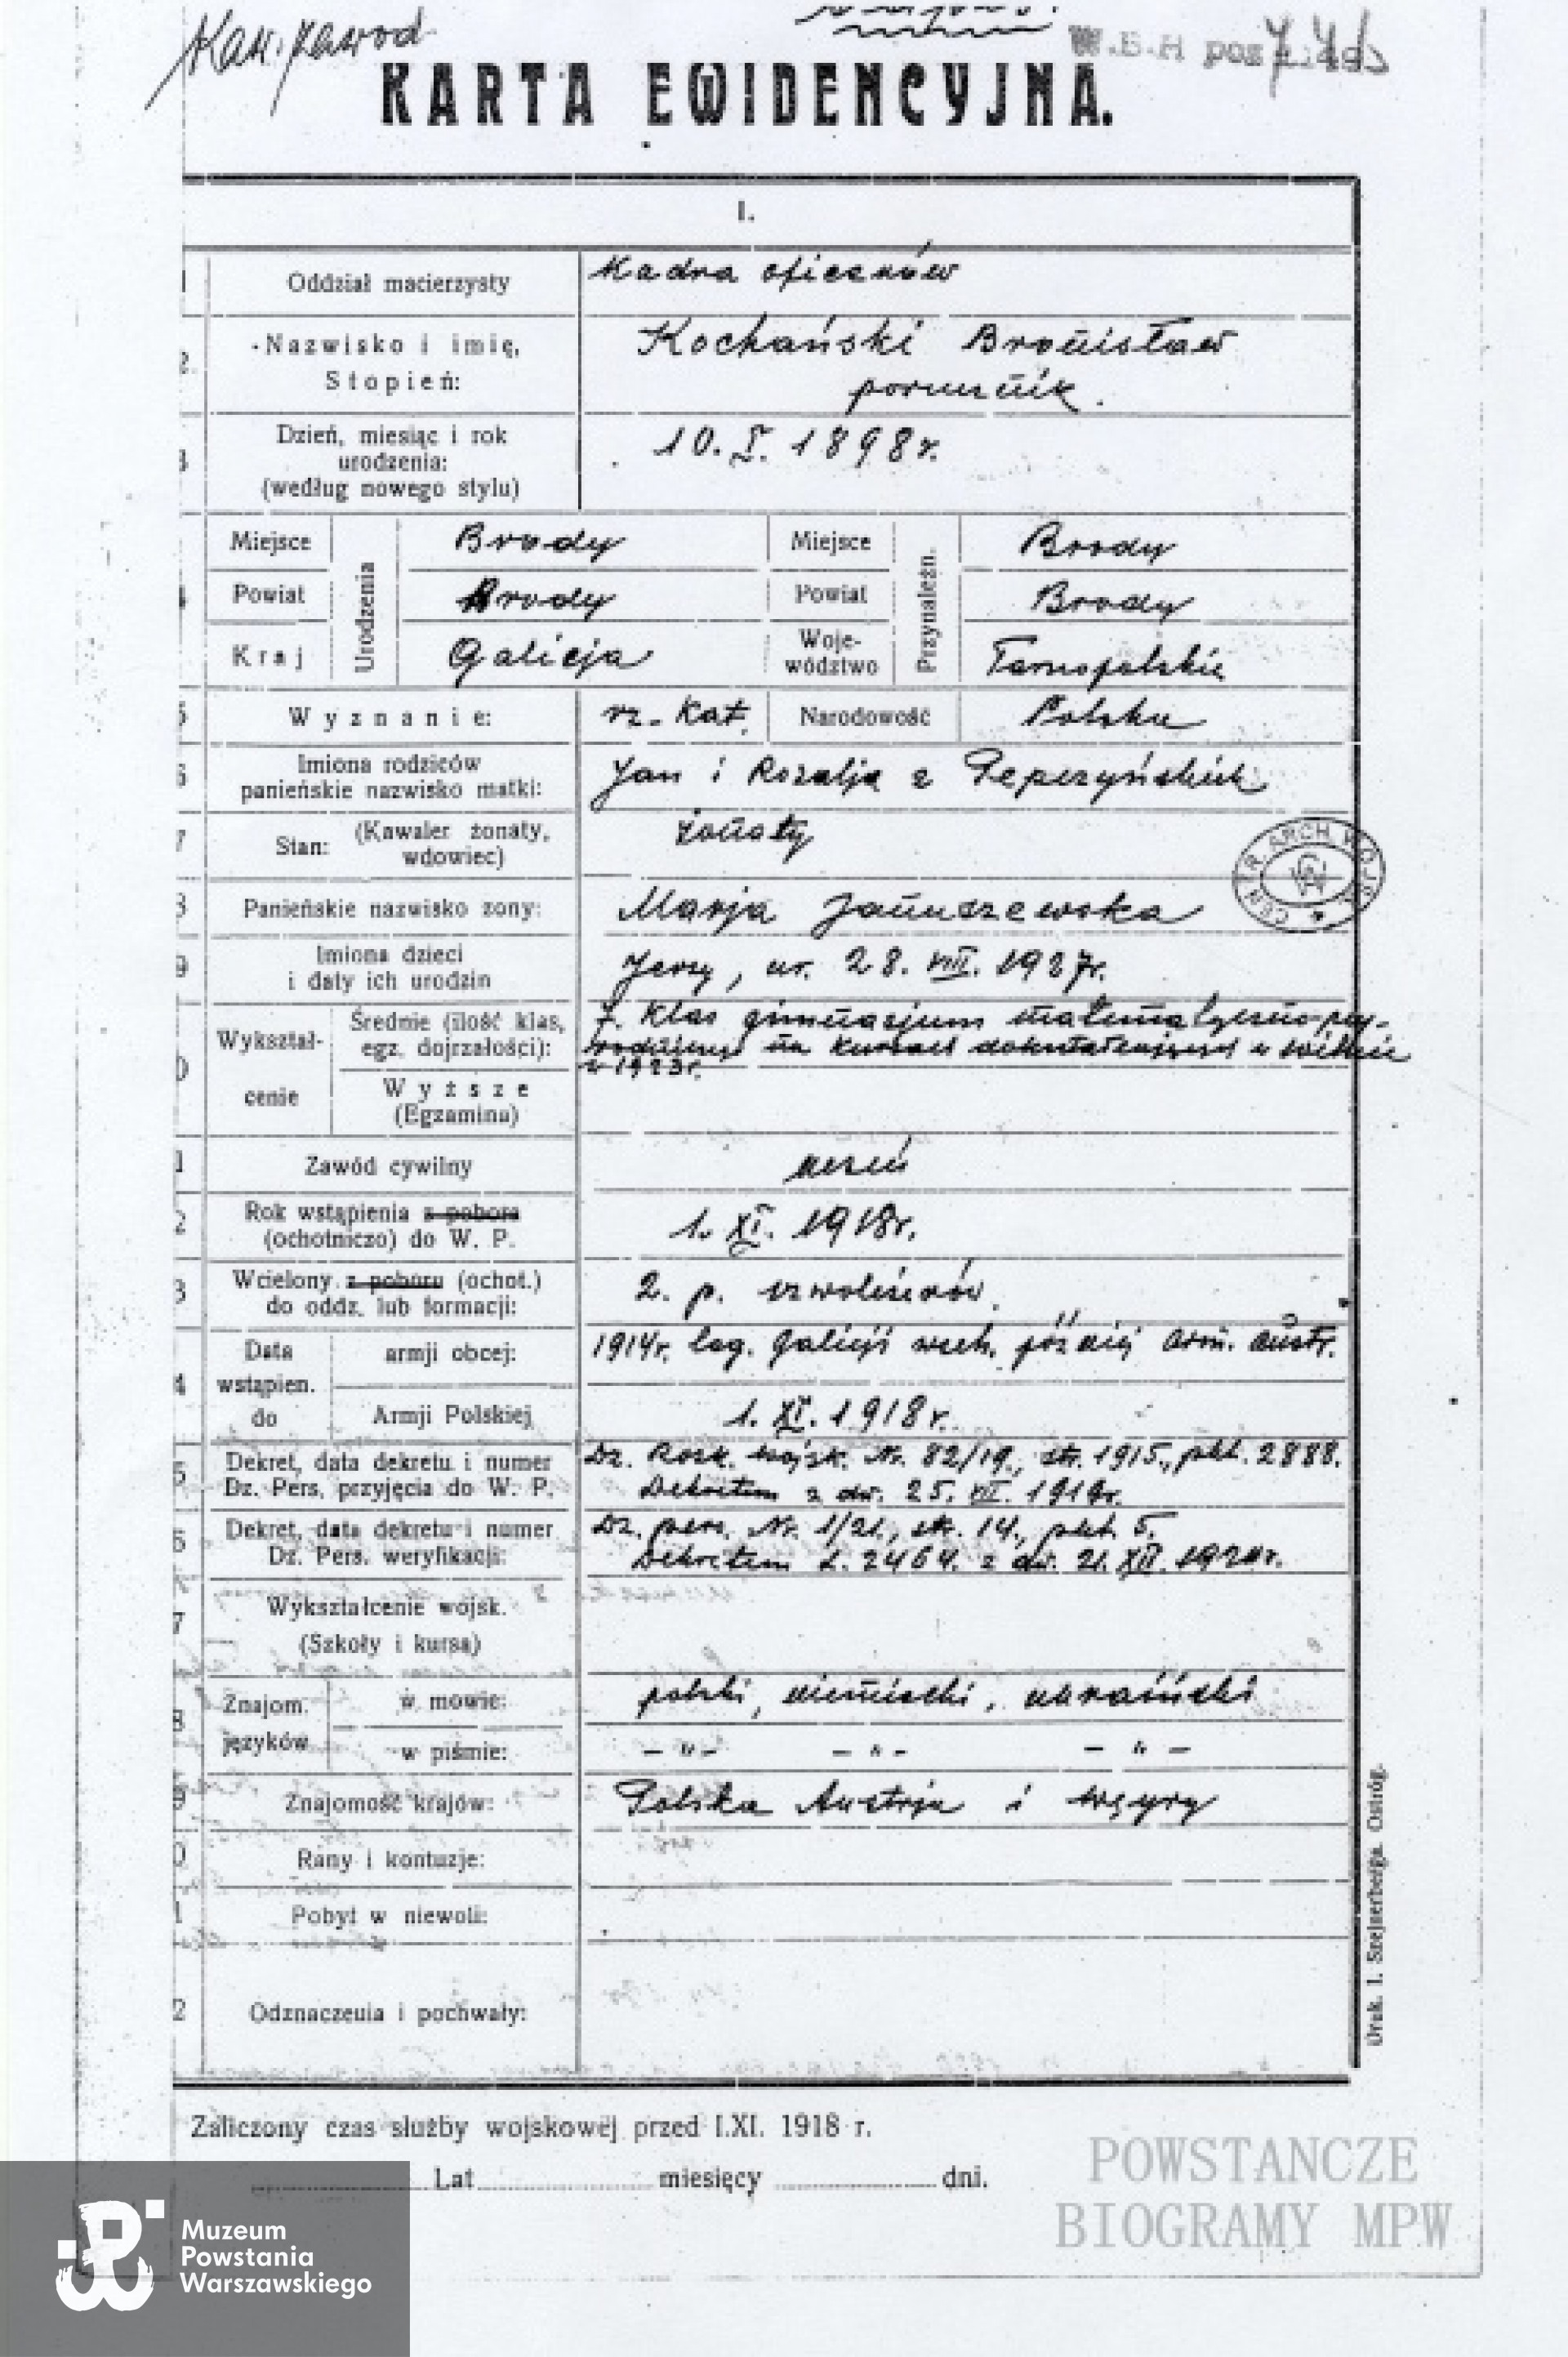 Kan. zawod.
W.B.H poz
KARTA EWIDENCYJNA.
I.
1 Oddział macierzysty Kadra oficerów
2. Nazwisko i imię, Kochański Bronisław
Stopień: porucznik.
3 Dzień, miesiąc i rok 10. I. 1898 r.
urodzenia:
(według nowego stylu)
Miejsce Brody Miejsce Brody
4 Powiat Urodzenia Brody Powiat Przynależn. Brody
Kraj Galicja Woje-
wództwo Tarnopolskie
5 Wyznanie: rz. Kat. Narodowość Polska
6 Imiona rodziców Jan i Rozalja z
panieńskie nazwisko matki:
7 Stan: (Kawaler żonaty, żonaty
wdowiec)
8 Panieńskie nazwisko żony: Marja Januszewska
9 Imiona dzieci Jerzy, ur. 28. VIII. 1927r.
i daty ich urodzin
0 Wykształ- Średnie (ilość klas, 7. klas gimnazjum matematyczno-przy-
egz. dojrzałości): rodnicze na kursach dokształcających w Wilnie
w 1923r.
cenie Wyższe
(Egzamina)
1 Zawód cywilny uczeń
2 Rok wstąpienia z poboru 1. XI. 1918r.
(ochotniczo) do W. P.
3 Wcielony z poboru (ochot.) 2. p. szwoleżerów
do oddz. lub formacji:
4 Data armji obcej: 1914r. Leg. Galicji wsch. później arm. austr.
wstąpien.
do Armji Polskiej 1. XI. 1918 r.
5 Dekret, data dekretu i numer Dz. Rozk. Wojsk. Nr. 82/19., str. 1915., pkt. 2888.
Dz. Pers. przyjęcia do W. P. Dekretem z dn. 25. VII. 1919r.
6 Dekret, data dekretu i numer Dz. pers. Nr. 1/21., str. 14., pkt. 5.
Dz. Pers. weryfikacji: Dekretem L. 2464. z dn. 21. XII. 1920r.
7 Wykształcenie wojsk.
(Szkoły i kursa)
8 Znajom. w mowie: polski, niemiecki, ukraiński
języków w piśmie: – " – – " – – " –
9 Znajomość krajów: Polska Austrja i Węgry
0 Rany i kontuzje:
1 Pobyt w niewoli:
2 Odznaczenia i pochwały:
CENTR. ARCH. WOJSK
Druk. I. Szejnerberga. Ostróg.
Zaliczony czas służby wojskowej przed I.XI. 1918 r.
Lat miesięcy dni.
POWSTAŃCZE
BIOGRAMY MPW
Muzeum
Powstania
Warszawskiego